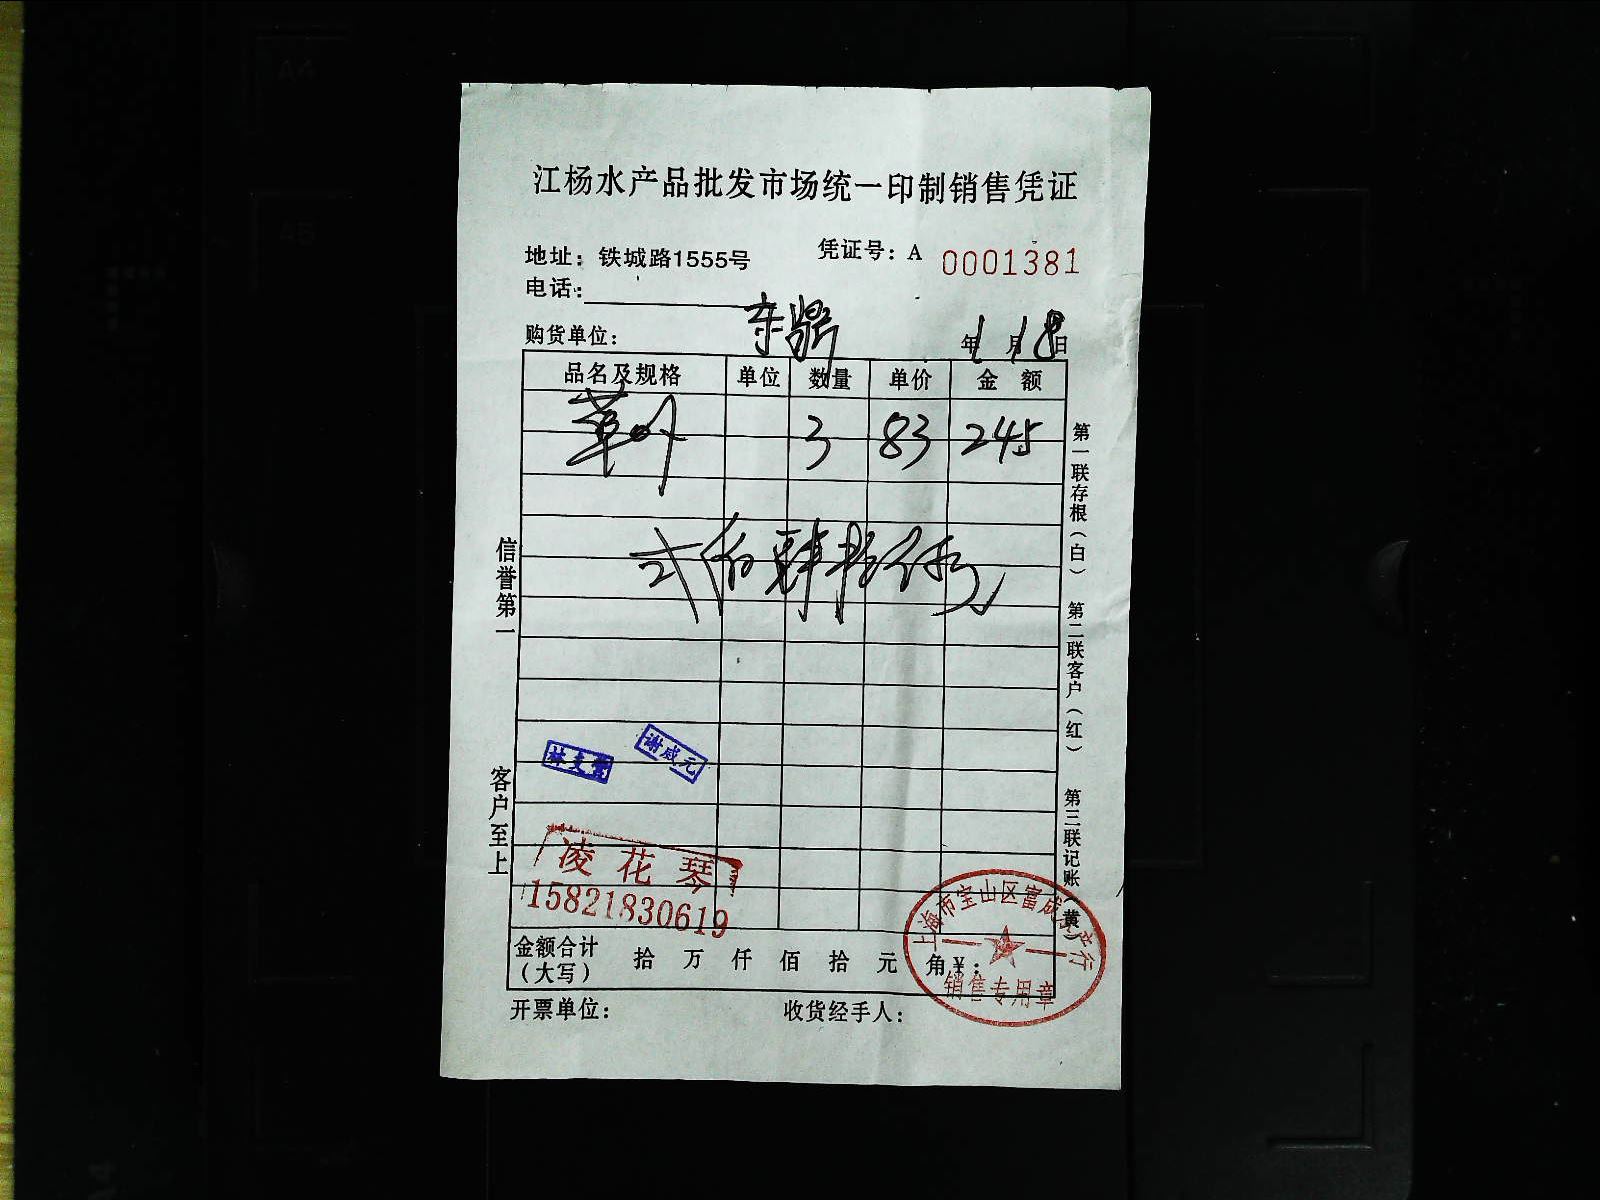 江杨水产品批发市场统一印制销售凭证
地址：铁城路1555号 凭证号：A 0001381
电话：
购货单位： 东鼎 年 1 月 18 日
品名及规格 单位 数量 单价 金 额
3 83 245
弍佰肆拾伍元
信誉第一
客户至上
第一联存根（白） 第二联客户（红） 第三联记账（黄）
谢成元
凌花琴
15821830619
金额合计（大写） 拾 万 仟 佰 拾 元 角 ¥：
上海市宝山区富成水产行
销售专用章
开票单位： 收货经手人：